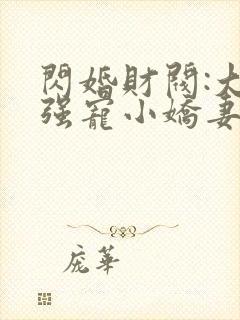 閃婚財閥:大
强寵小嬌妻
庞華